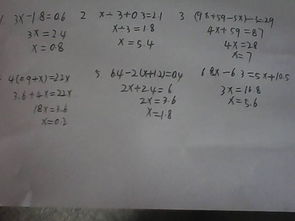 1 3x-1.8=0.6
3x=2.4
x=0.8
2 x÷3+0.3=2.1
x÷3=1.8
x=5.4
3
4x+59=87
4x=28
x=7
4(0.9+x)=22x
3.6+4x=22x
18x=3.6
x=0.2
5 6.4-2(x+1.2)=0.4
2x+2.4=6
2x=3.6
x=1.8
6 8x-6.3=5x+10.5
3x=16.8
x=5.6